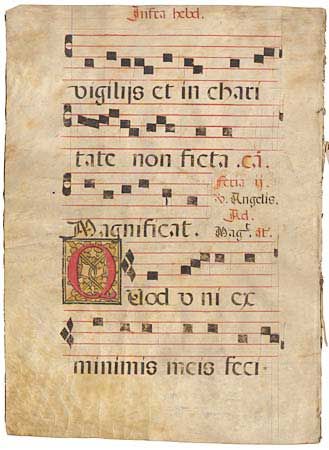 Infra hebd.
vigilijs et in chari
tate non ficta. cā.
Feria ij.
v. Angelis.
Ad.
Magnificat. Mag. at.
Quod v ni ex
minimis meis feci.